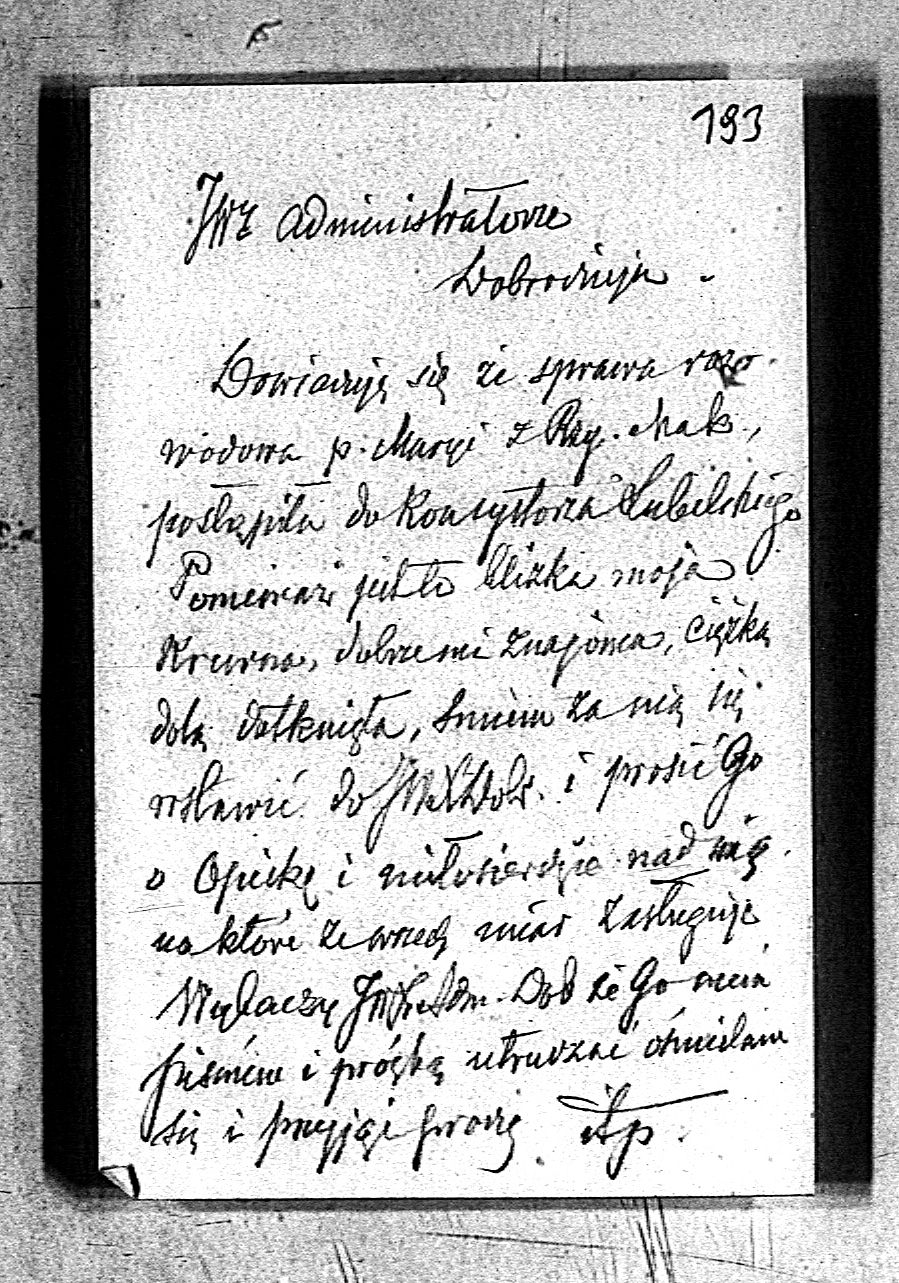 193
JWX Administratorze
Dobrodzieju.
Dowiaduję się że sprawa rozo-
wodowa p. Maryi z Rzy. Mak.,
postąpiła do Konsystorza Lubelskiego
Ponieważ jest to blizka moja
Krewna, dobrze mi znajoma, ciężką
dolą dotknięta, śmiem za nią się
wstawić do Dob. i prosić Go
o Opiekę i miłosierdzie nad nią
na które ze wszech miar zasługuje
Wybaczy Adm. Dob że Go mem
pismem i prośbą utrudzać ośmielam
się i przyjąć